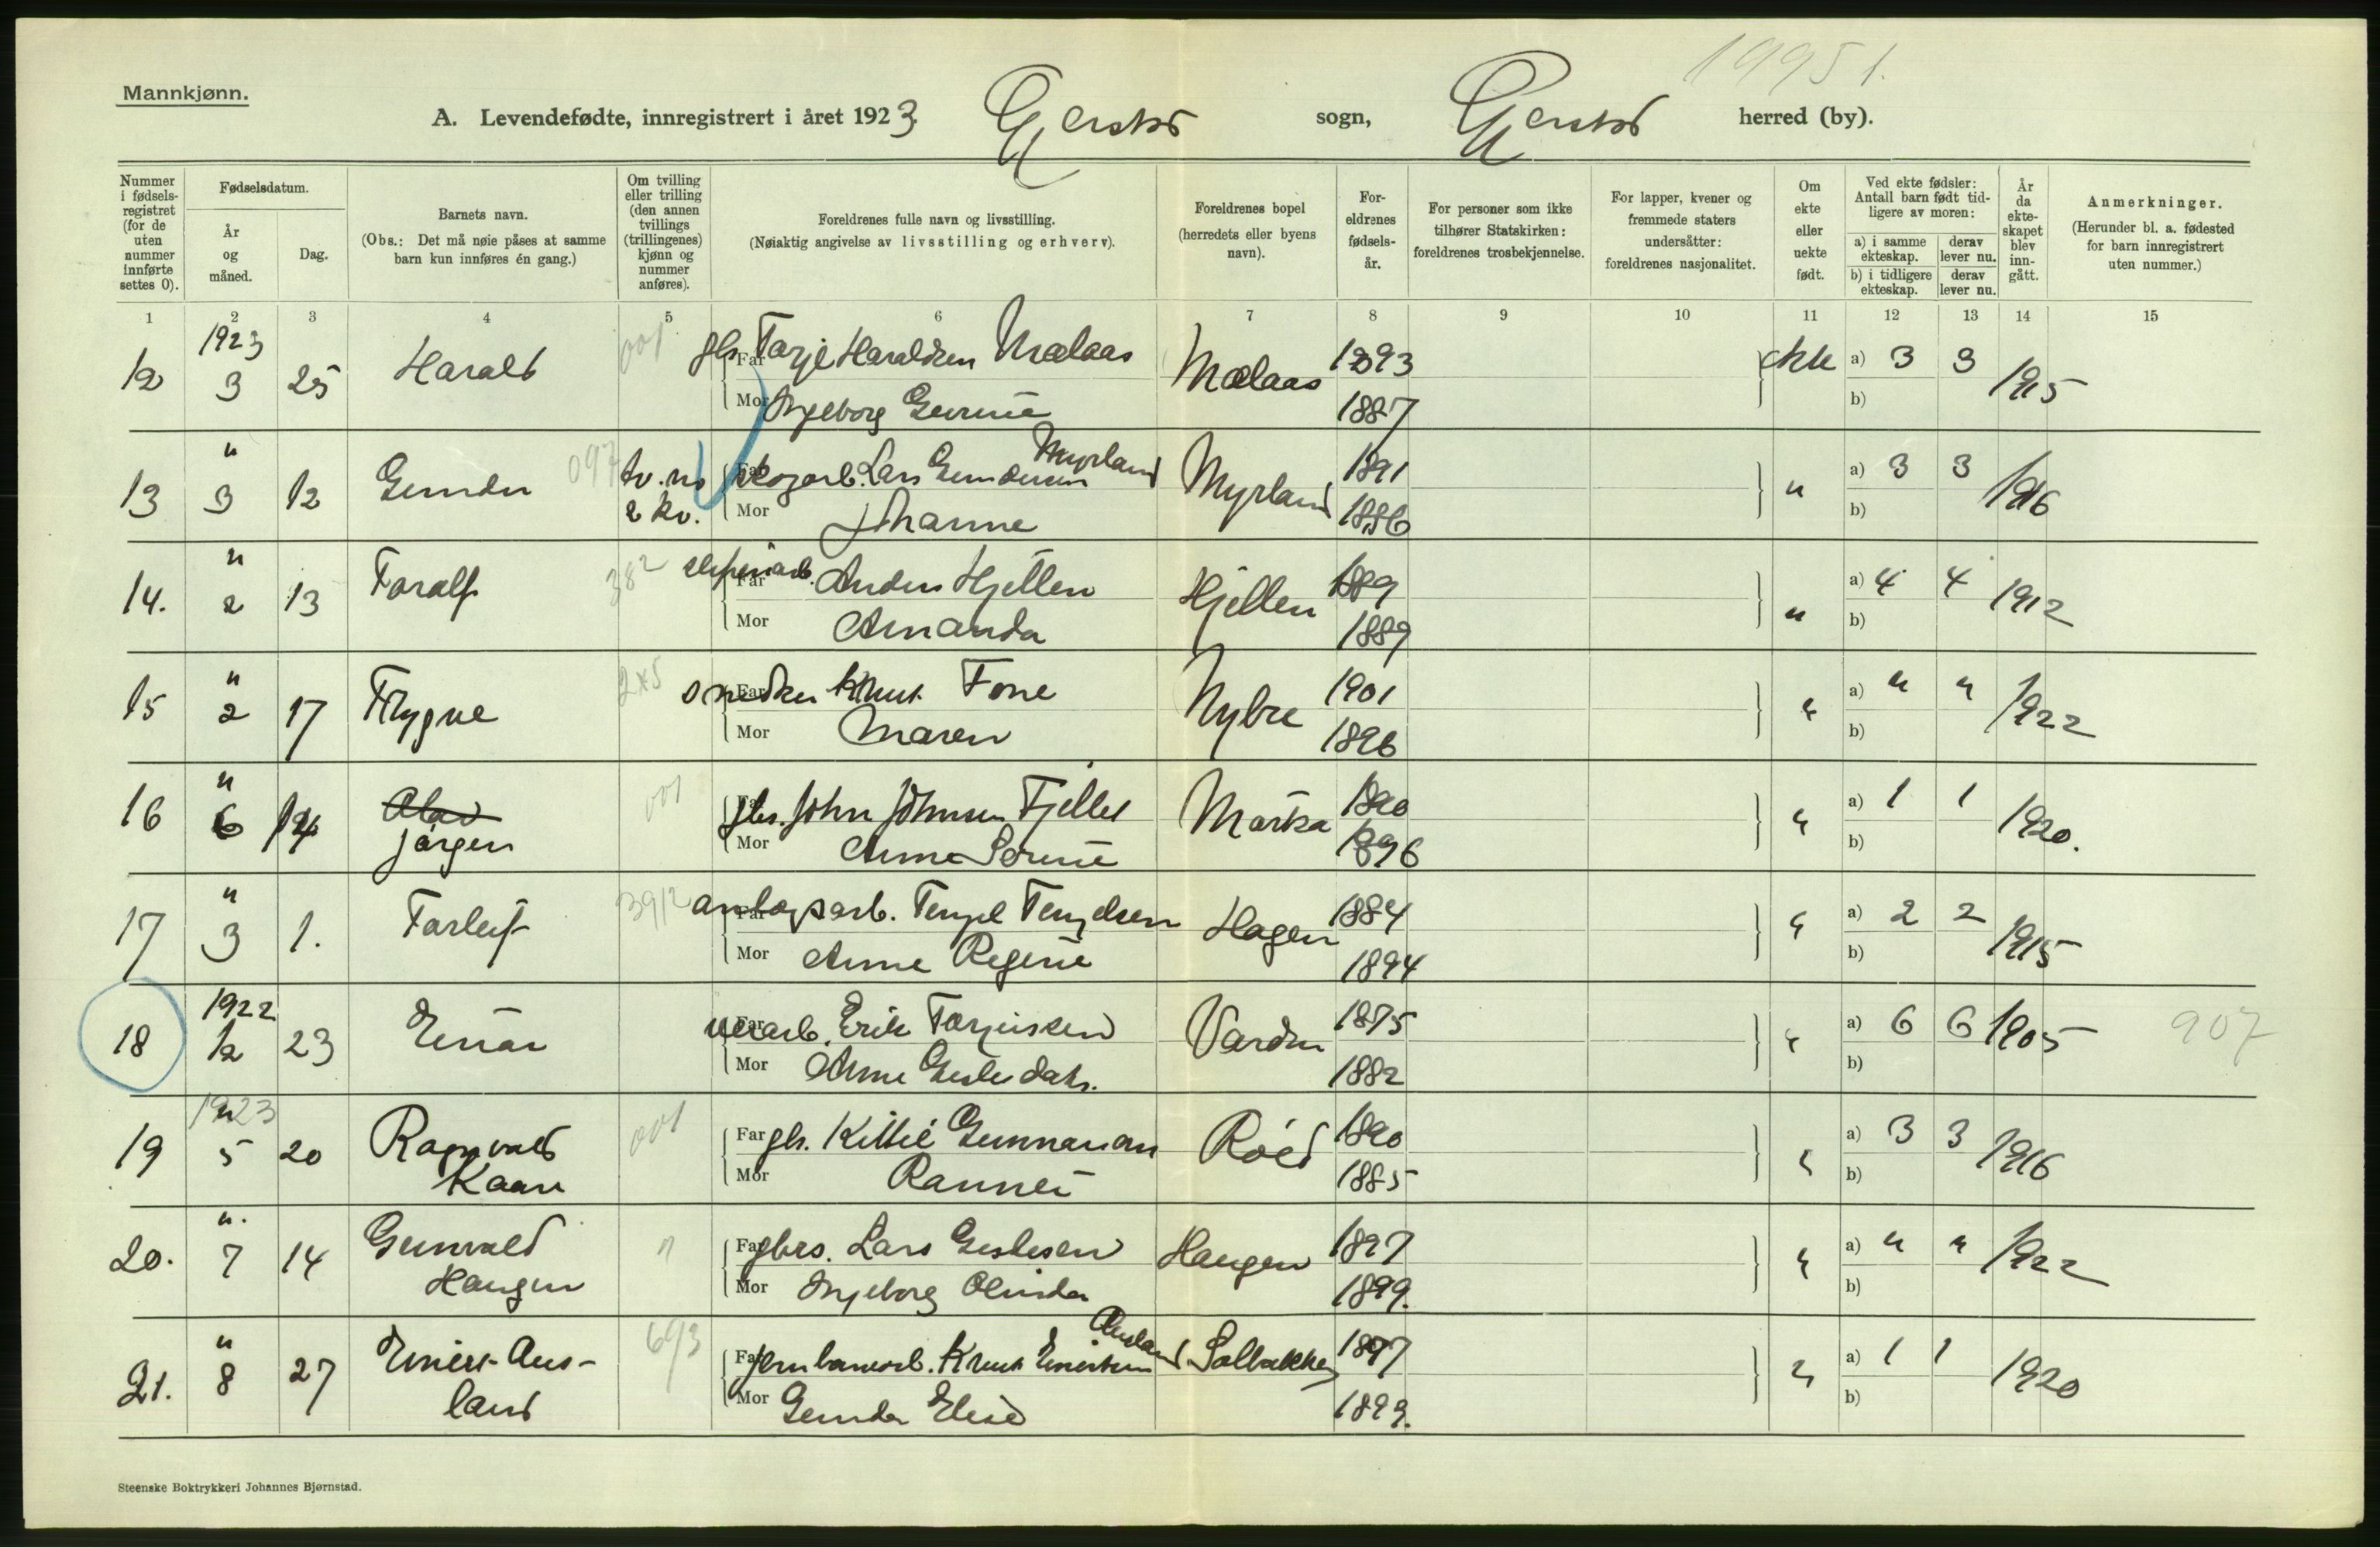 19951.
Mannkjønn.
A. Levendefødte, innregistrert i året 1923 Gjerstad sogn, Gjerstad herred (by).
Nummer i fødsels-registret (for de uten nummer innførte settes 0).
Fødselsdatum.
År og måned.
Dag.
Barnets navn.
(Obs.: Det må nøie påses at samme barn kun innføres én gang.)
Om tvilling eller trilling (den annen tvillings (trillingenes) kjønn og nummer anføres).
Foreldrenes fulle navn og livsstilling.
(Nøiaktig angivelse av livsstilling og erhverv).
Foreldrenes bopel (herredets eller byens navn).
For-eldrenes fødsels-år.
For personer som ikke tilhører Statskirken: foreldrenes trosbekjennelse.
For lapper, kvener og fremmede staters undersåtter: foreldrenes nasjonalitet.
Om ekte eller uekte født.
Ved ekte fødsler: Antall barn født tid-ligere av moren:
a) i samme ekteskap.
derav lever nu.
b) i tidligere ekteskap.
derav lever nu.
År da ekte-skapet blev inn-gått.
Anmerkninger.
(Herunder bl. a. fødested for barn innregistrert uten nummer.)
1 2 3 4 5 6 7 8 9 10 11 12 13 14 15
12 1923 3 25 Harald 001 Far Tarje Haraldsen Mælaas Mælaas 1893 ekte a) 3 3 1915
Mor Ingeborg 1887 b)
13 " 3 12 Gunder 097 tv. m 2 kv. Far skogarb. Lars Gundersen Myrland Myrland 1891 " a) 3 3 1916
Mor Johanne 1886 b)
14. " 2 13 Toralf 382 Far sliperiarb. Anders Hjellen Hjellen 1889 " a) 4 4 1912
Mor Amanda 1889 b)
15 " 2 17 Trygve 2x5 Far snedker Knut Tone Nybre 1901 " a) " " 1922
Mor Maren 1896 b)
16 " 6 14 Olav Jørgen 001 Far gbr. John Johnsen Fjellet Marka 1890 " a) 1 1 1920.
Mor Anne Serine 1896 b)
17 " 3 1. Tarleif 3912 Far anlegsarb. Terjel Terjelsen Hagen 1884 " a) 2 2 1915
Mor Anne Regine 1894 b)
18 1922 12 23 Einar Far Erik Torjussen Varden 1875 " a) 6 6 1905 907
Mor Anne Gislesdatr. 1882 b)
19 1923 " 5 20 Ragnvald Kaare 001 Far gbr. Kittil Gunnarson Røed 1890 " a) 3 3 1916
Mor Rannei 1885 b)
20. " 7 14 Gunvald Haugen " Far gbrs. Lars Gislesen Haugen 1897 " a) " " 1922
Mor Ingeborg Olinda 1899. b)
21. " 8 27 Einert Aus-land 693 Far jernbanearb. Knut Einertsen Ausland Solbakken 1897 " a) 1 1 1920
Mor Gunda Elise 1899. b)
Steenske Boktrykkeri Johannes Bjørnstad.